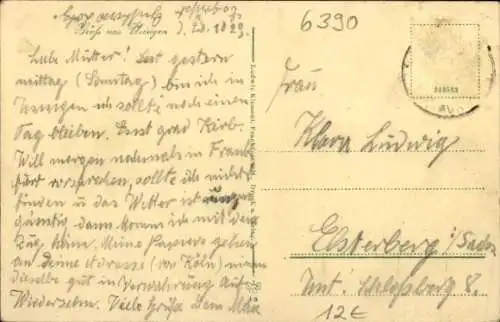 6390
Gruß aus Hungen
Liebe Mutter! Seit gestern
mittag (Sonntag) bin ich in
Hungen u. sollte noch einen
Tag bleiben. Erst grad Kirb.
Will morgen nochmals in Frank
furt vorsprechen, sollte ich nichts
finden u das Wetter ist
günstig dann komm ich mit dem
Zug heim. Meine Papiere gehen
an Deine Adresse (von Köln) nimm
dieselbe gut in Verwahrung Auf
Wiedersehn. Viele Grüße Dein Max
Frau
Klara Ludwig
Elsterberg i/Sachsen
Unt. Schloßberg 8.
12€